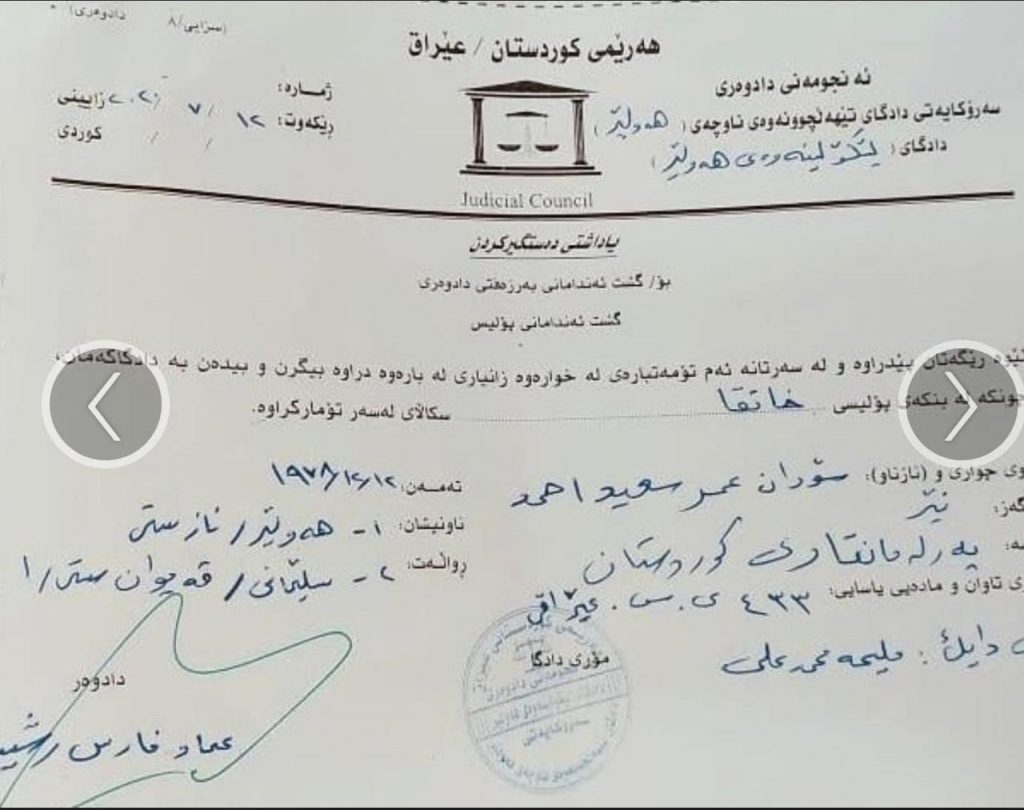 (سزایی/٨ دادوەری)
هەرێمی کوردستان / عێراق
ئەنجومەنی دادوەری
سەرۆکایەتی دادگای تێهەڵچوونەوەی ناوچەی ( هەولێر )
دادگای ( لێکۆلینەوەی هەولێر )
ژمارە:
ڕێکەوت: ١٢ / ٧ / ٢٠٢ زایینی
/ / کوردی
Judicial Council
یاداشتی دەستگیرکردن
بۆ/ گشت ئەندامانی بەرزەفتی دادوەری
گشت ئەندامانی پۆلیس
ئێوە ڕێگەتان پێدراوە و لە سەرتانە ئەم تۆمەتبارەی لە خوارەوە زانیاری لە بارەوە دراوە بیگرن و بیدەن بە دادگاکەمان،
چونکە لە بنکەی پۆلیسی خانقا سکاڵای لەسەر تۆمارکراوە.
وی جواری و (نازناو): سۆران عمر سعید احمد
تەمەن: ١٩٧٨/١٢/١٢
گەز: نێر
ناونیشان: ١- هەولێر / نازستی
پەرلەمانتاری کوردستان
ڕواڵەت: ٢- سلێمانی /
ی تاوان و ماددەیی یاسایی: ٤٣٣ ی. س. عێراقی
دایك : ملیحە محمد علی
مۆری دادگا
دادوەر
عماد فارس رشید